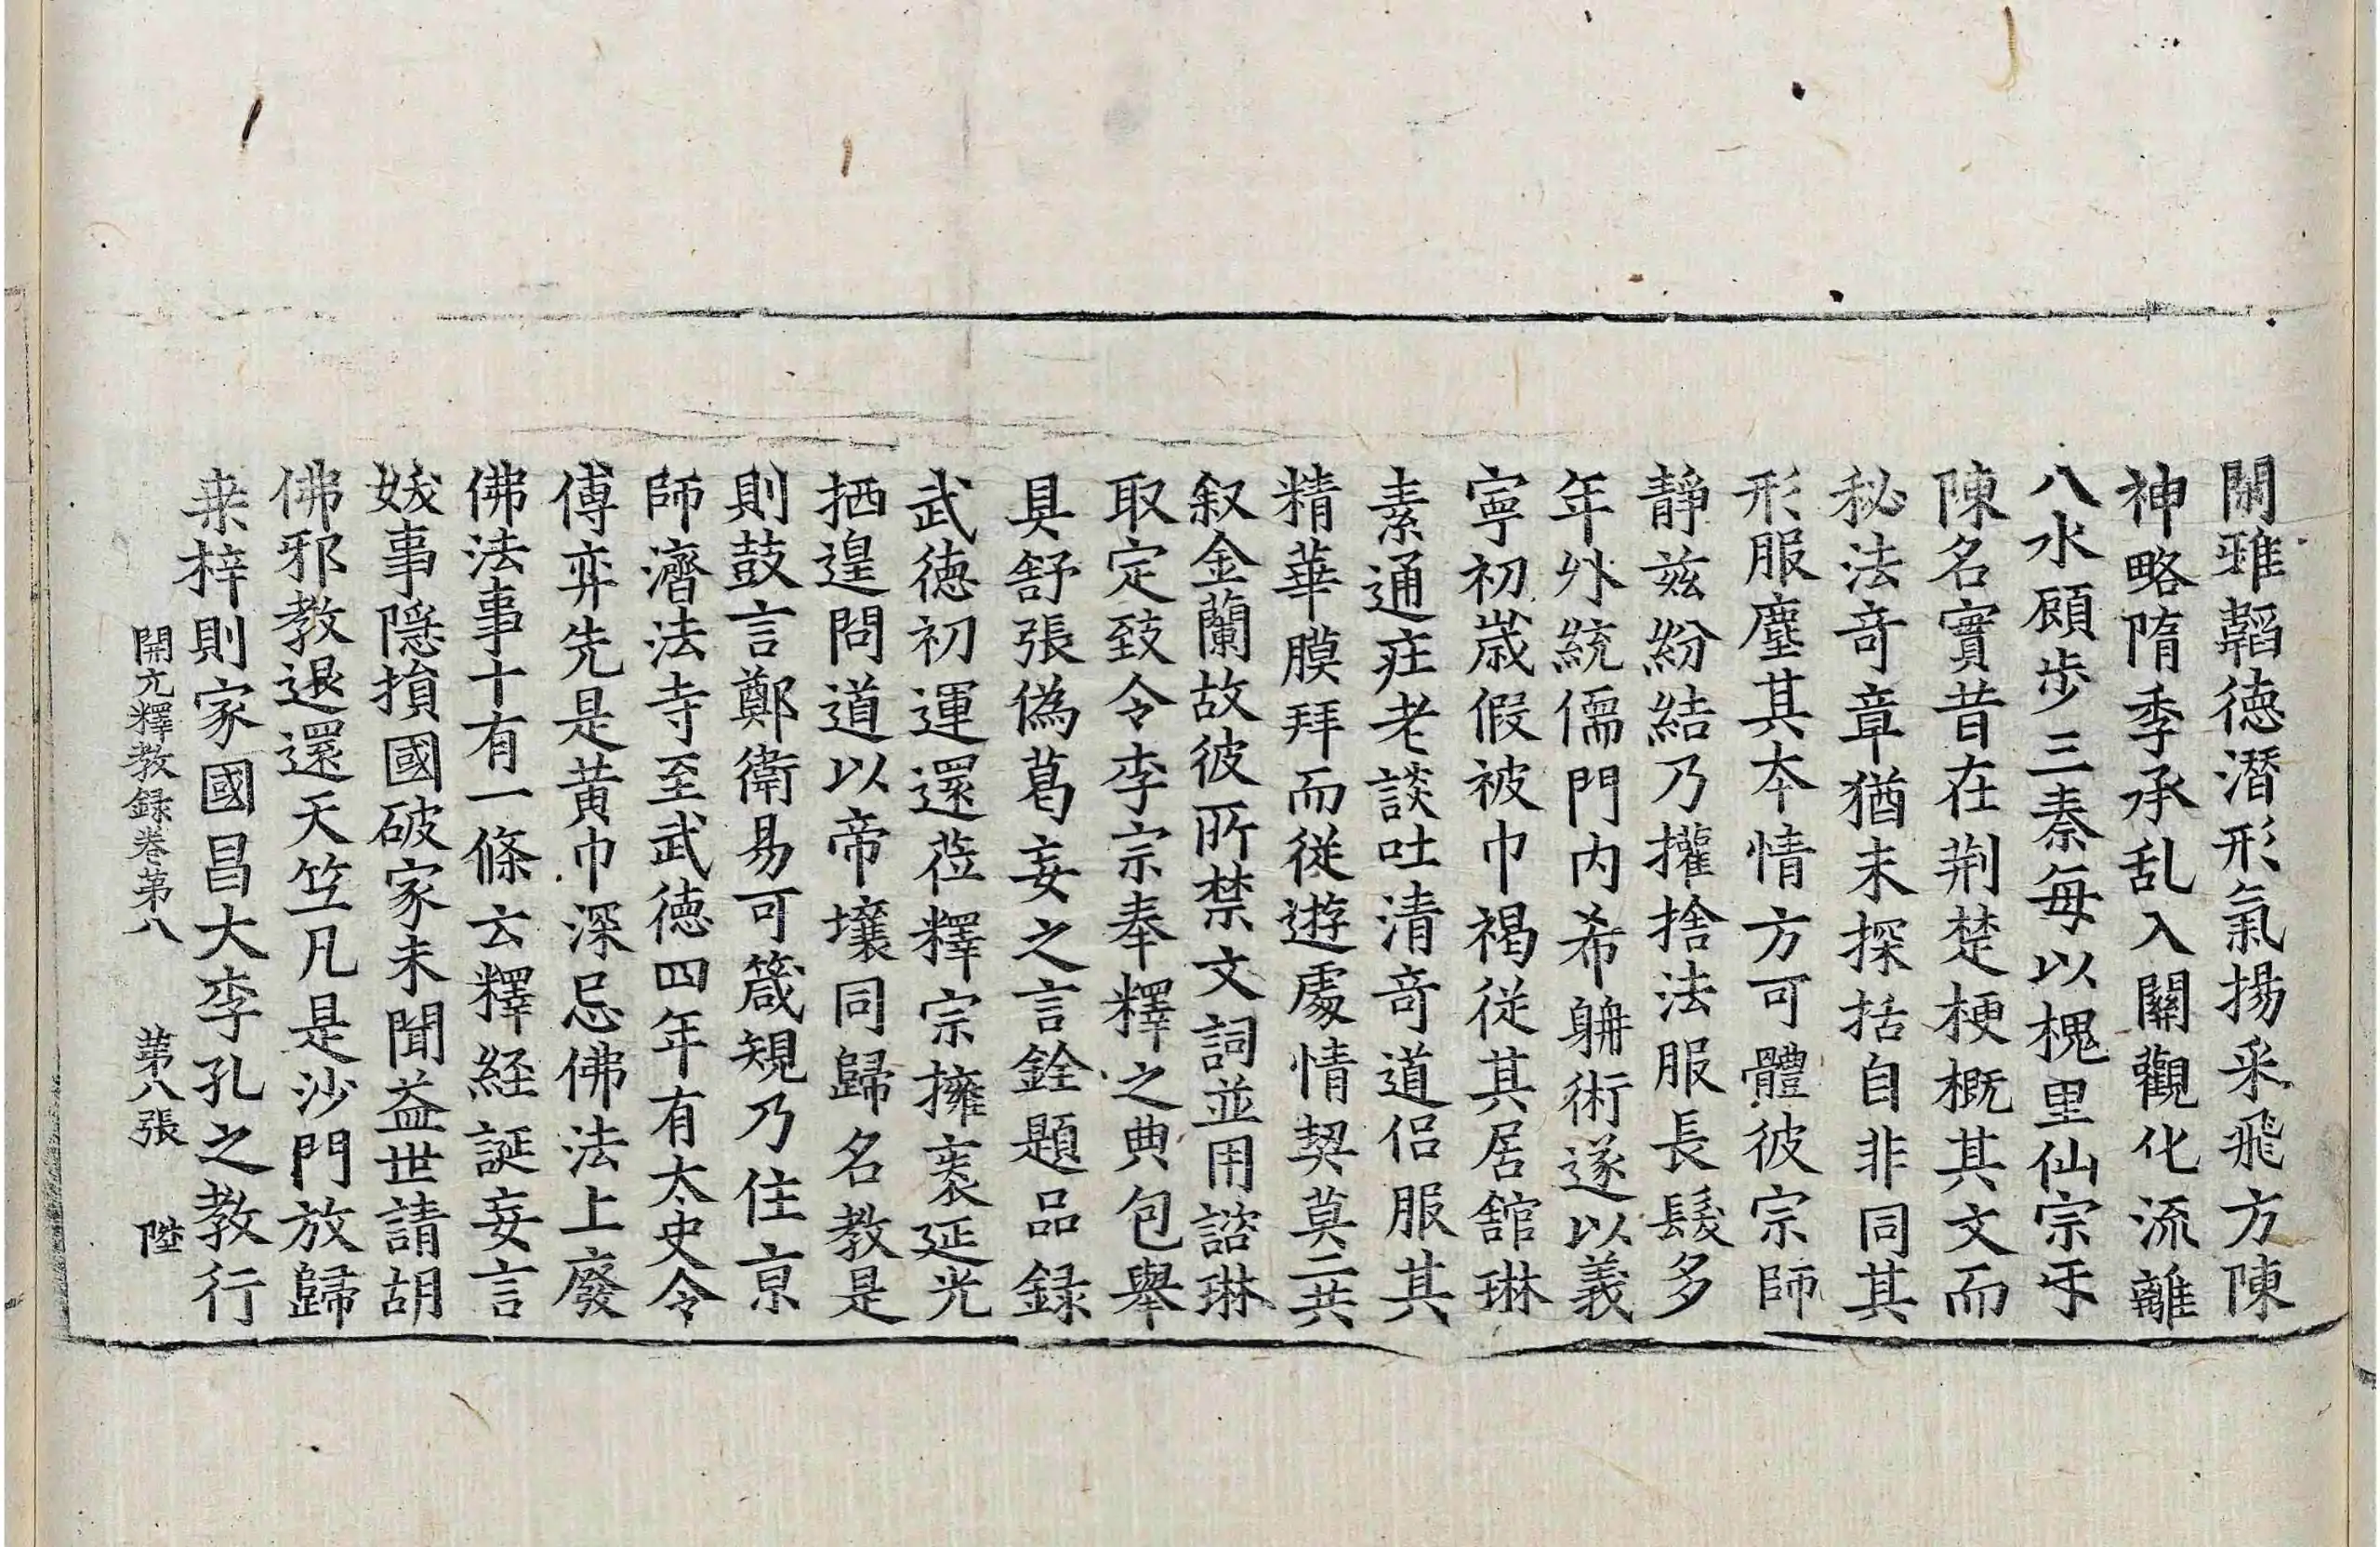 閞雅韜徳潛形氣揚采飛方陳
神略隋季承乱入關觀化流離
八水顧步三秦每以槐里仙宗㸦
陳名實昔在荆楚梗概其文而
秘法竒章猶未探括自非同其
形服塵其本情方可體彼宗師
靜兹紛結乃擢捨法服長髮多
年外統儒門内希聃術遂以義
寧初歳假被巾褐從其居舘琳
素通莊老談吐清竒道侣服其
精華膜拜而從遊處情契莫二共
叙金蘭故彼所禁文詞並用諮琳
取定致令李宗奉釋之典包舉
具舒張偽葛妄之言銓題品録
武徳初運還莅釋宗擁袠延光
栖遑問道以帝壤同歸名教是
則鼓言鄭衛易可箴規乃住京
師濟法寺至武徳四年有太史令
傅弈先是黄巾深忌佛法上廢
佛法事十有一條云釋経誕妄言
妖事隠損國破家未聞益世請胡
佛邪教退還天笁凡是沙門放歸
桒梓則家國昌大李孔之教行
開元釋教録卷第八　第八張　陞